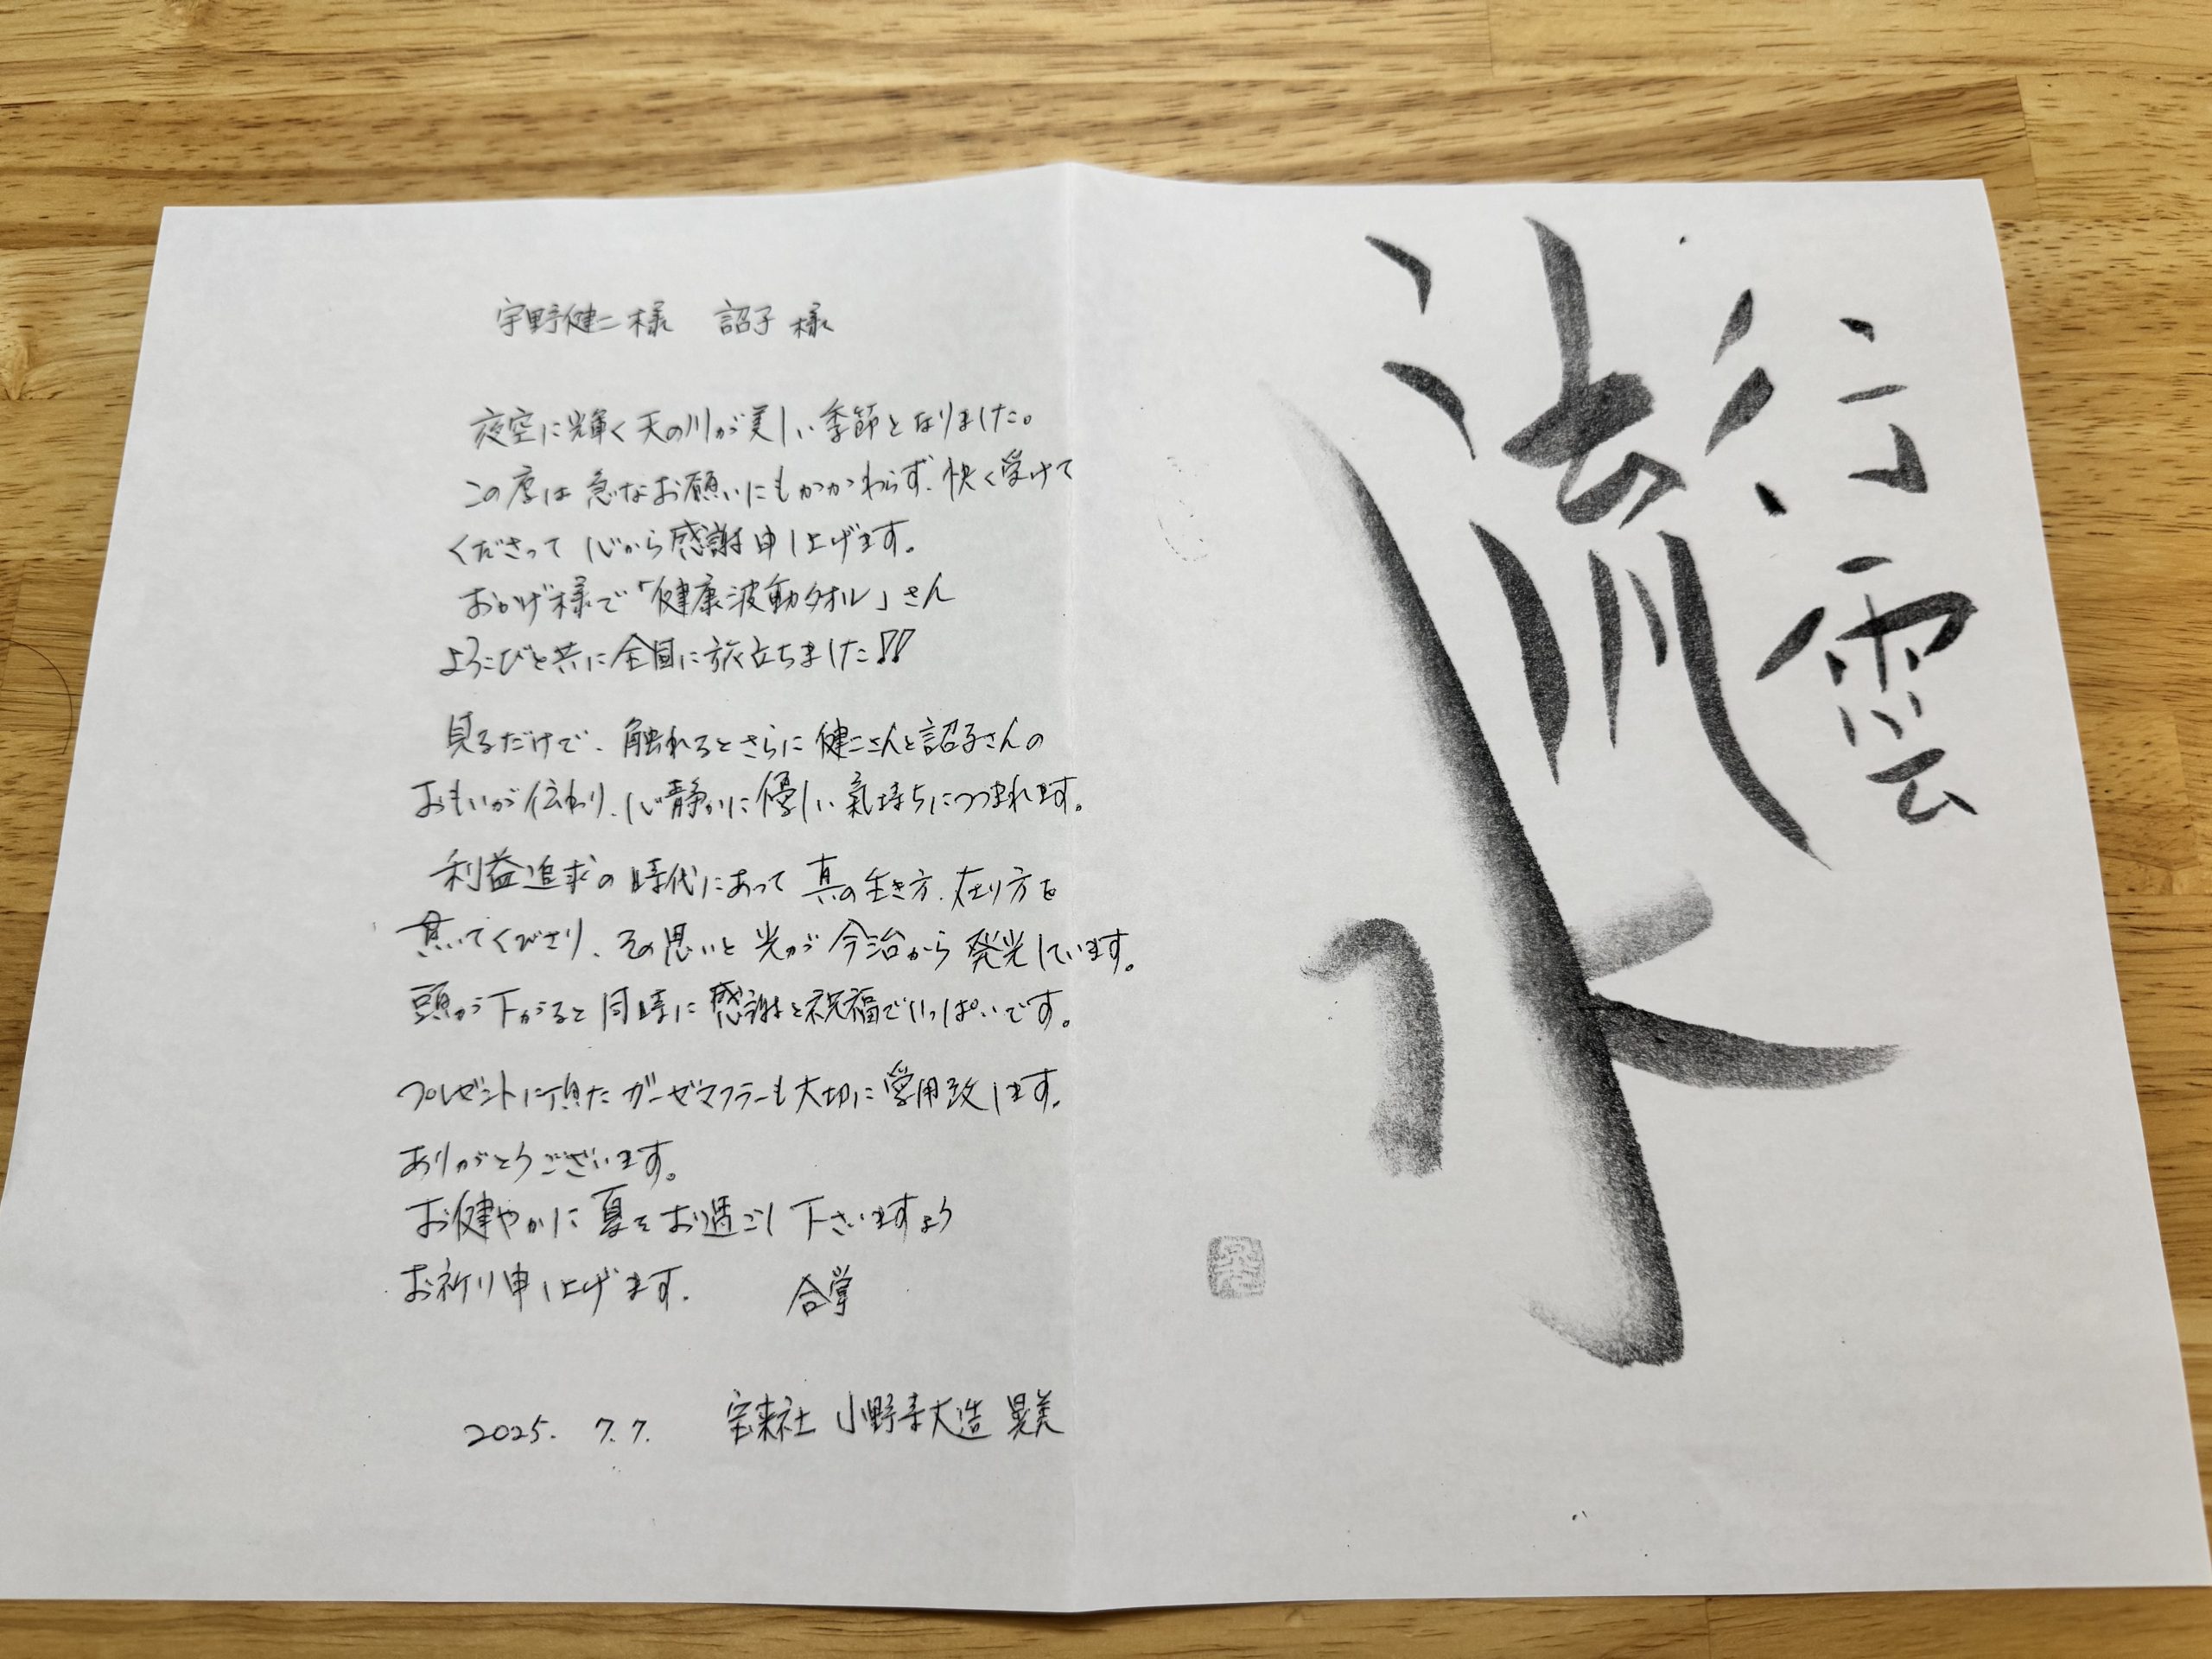 行雲
流
水
宇野健二様　詔子様
夜空に輝く天の川が美しい季節となりました。
この度は急なお願いにもかかわらず、快く受けて
くださって心から感謝申し上げます。
おかげ様で「健康波動タオル」さん
よろこびと共に全国に旅立ちました!!
見るだけで、触れるとさらに健二さんと詔子さんの
おもいが伝わり、心静かに優しい氣持ちにつつまれます。
利益追求の時代にあって真の生き方、在り方を
貫いてくださり、その思いと光が今治から発光しています。
頭が下がると同時に感謝と祝福でいっぱいです。
プレゼントに頂いたガーゼマフラーも大切に愛用致します。
ありがとうございます。
お健やかに夏をお過ごし下さいますよう
お祈り申し上げます。　合掌
2025. 7. 7.　社 小野寺大造 晃美